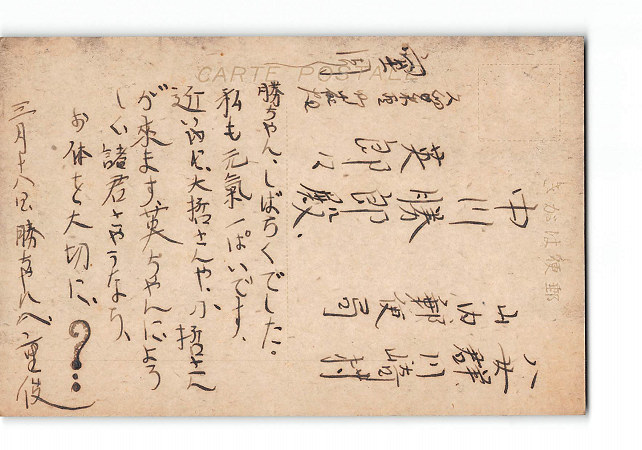 CARTE POSTALE
きがは便郵
八女郡川崎村
山内郵便局
中川勝郎殿
英郎
勝ちやん、しばらくでした。
私も元氣一ぱいです、
近い内に大哲さんや、小哲さん
が来ます、英ちやんによろ
しく諸君さやうなら、
お体を大切に、?
三月十八日 勝ちやんへ 重俊